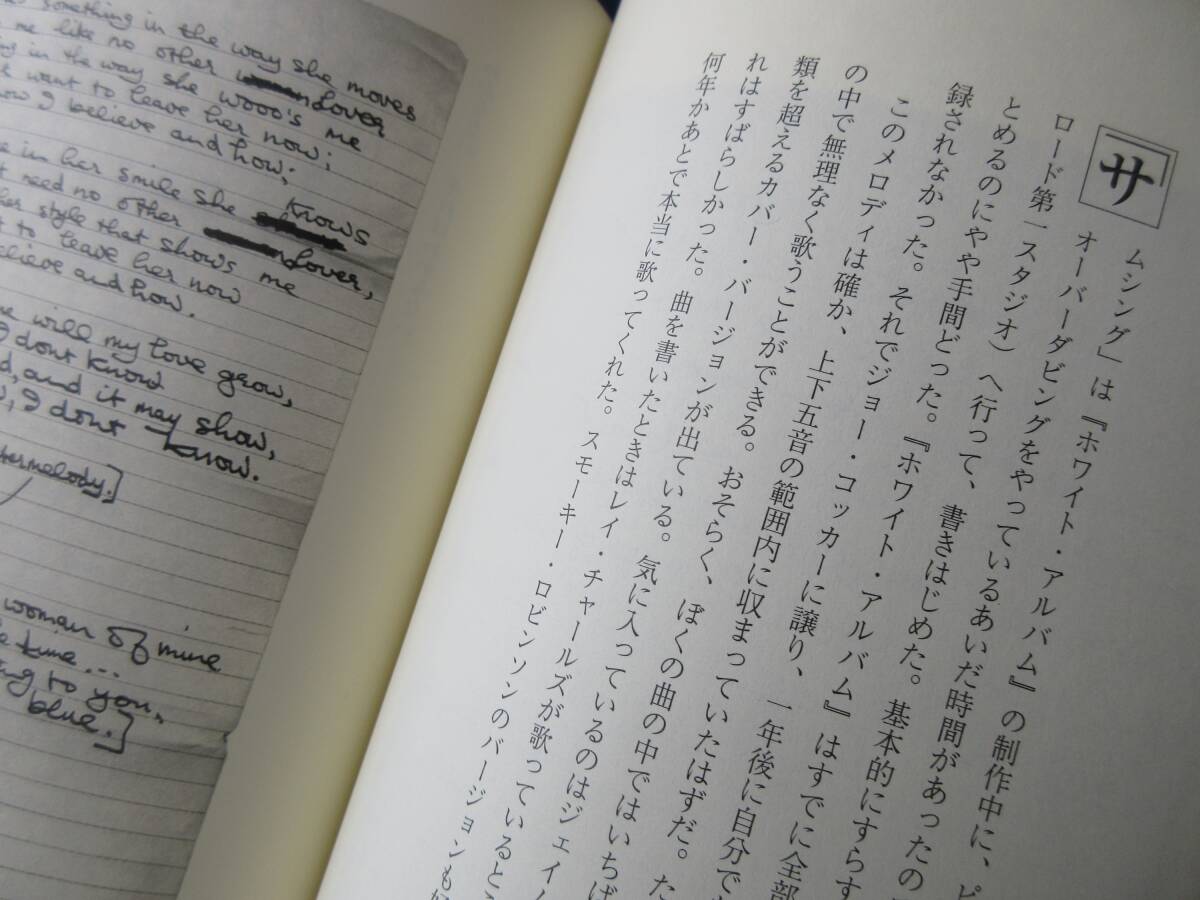 something in the way she moves
me like no other lover
in the way she wooo's me
want to leave her now;
I believe and how;
in her smile she knows
need no other lover,
her style that shows me
to leave her now
and how.
will my love grow,
I dont know
and it may show,
I dont know.
termelody.]
woman of mine
time...
to you,
blue.]
「サムシング」は『ホワイト・アルバム』の制作中に、ピ
オーバーダビングをやっているあいだ時間があったの
ロード第一スタジオ）へ行って、書きはじめた。基本的にすらす
とめるのにやや手間どった。『ホワイト・アルバム』はすでに全部
録されなかった。それでジョー・コッカーに譲り、一年後に自分で
このメロディは確か、上下五音の範囲内に収まっていたはずだ。た
の中で無理なく歌うことができる。おそらく、ぼくの曲の中ではいちば
類を超えるカバー・バージョンが出ている。気に入っているのはジェイム
れはすばらしかった。曲を書いたときはレイ・チャールズが歌っているとこ
何年かあとで本当に歌ってくれた。スモーキー・ロビンソンのバージョンも